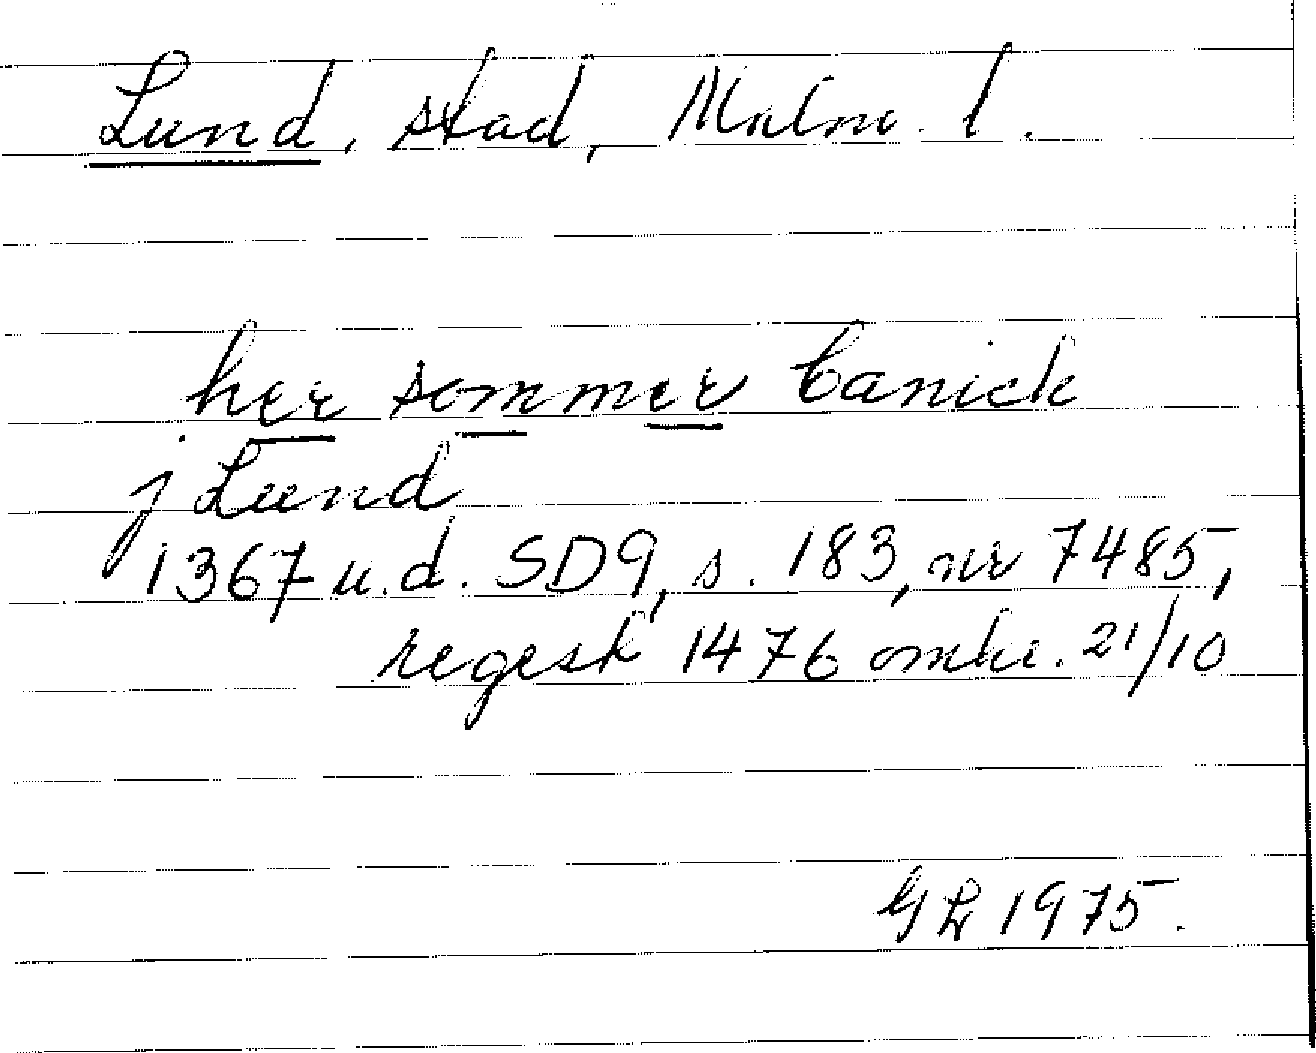 Lund, stad, Malm. l.
her sommer canick
j Lund
1367 u.d. SD9, s. 183, nr 7485,
regest 1476 omkr. 21/10
GL 1975.